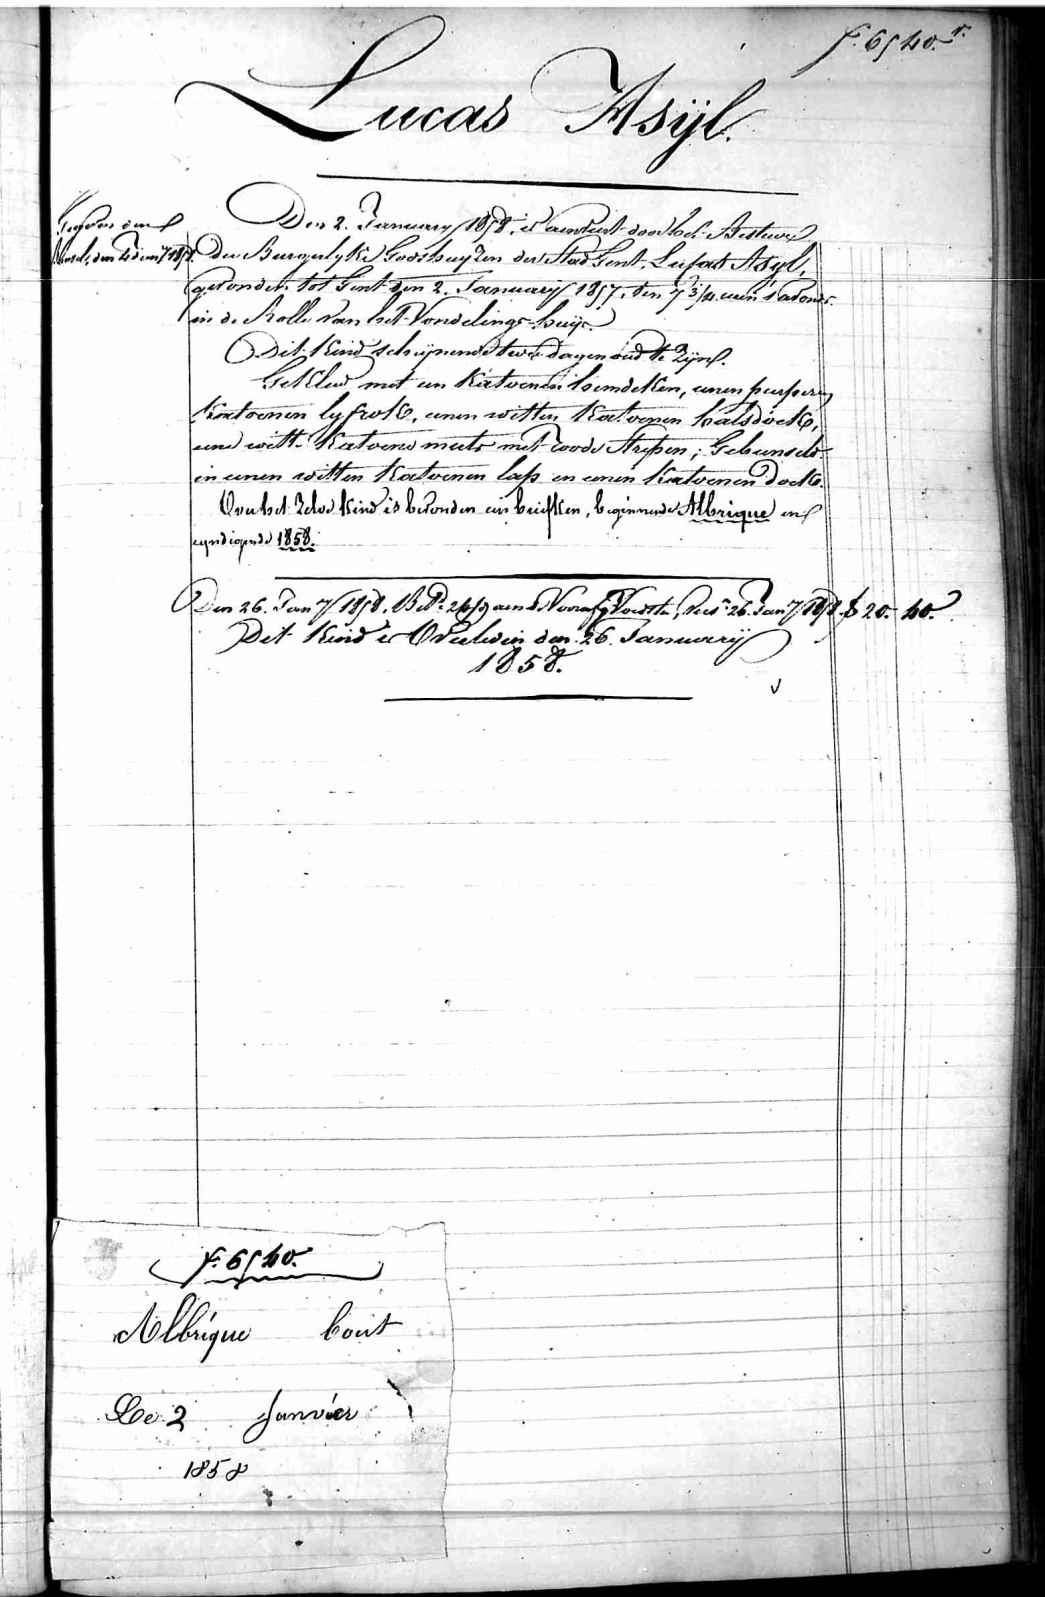 f. 6540. r.
Lucas Asÿl.
Den 2. January 1858, is aenveert door het Bestuer
der Burgerlyke Godshuyzen der Stad Gent, Lucas Asyl,
gevonden tot Gent den 2. January 1857, ten 7 3/4 uren s'avonds
in de Rolle van het Vondelings-huys.
Dit kind schynende twee dagen oud te zyn.
Gekleed met een katoenen hemdeken, eenen purperen
katoenen lyfrok, eenen witten katoenen halsdoek,
eene witte katoene muts met roode strepen; Gebunseld
in eenen witten katoenen lap en eenen katoenen doek.
Over het zelve kind is bevonden een briefken, beginnende Albrique en
eyndigende 1858.
Den 26. Jan 1858, aen de Voorsz 26. Jan 1858. 20. 40.
Det kind is Overleden den 26. Januarÿ
1858.
f. 6540.
Albrique
Le 2 Janvier
1858